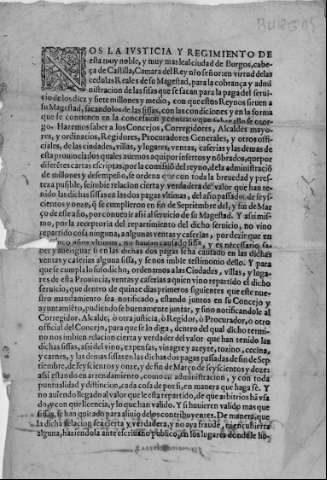 BURGOS
NOS LA IVSTICIA Y REGIMIENTO DE
esta muy noble, y muy mas leal ciudad de Burgos, cabe-
ça de Castilla, Camara del Rey nro señor en virtud de las
cedulas Reales de su Magestad, para la cobrança y admi-
nistracion de las sisas que se sacan para la paga del servi-
cio de los diez y siete millones y medio, con que estos Reynos siruen a
su Magestad, sacandolos de las sissas, con las condiciones y en la forma
que se contienen en la concession y contrato que sobre ello se otor-
go. Hazemos saber a los Concejos, Corregidores, Alcaldes mayo-
res, y ordinarios, Regidores, Procuradores Generales, y otros offi-
ciales, de las ciudades, villas, y lugares, ventas, caserias y las demas de
esta prouincia a los quales auemos
ferentes cartas escriptas, por la comission del reyno, de la administracio
de millones, y desempeño, se ordena que con toda la breuedad y pres-
teza pusible, se imbie relacion cierta y verdadera del valor que han te-
nido las dichas sissas en las dos pagas vltimas, del año passado de seys-
cientos y onze, q se cumplieron en fin de Septiembre del, y fin de Mar-
ço de este año, por conuenir assi al seruicio de su Magestad. Y assi mis-
mo, por la receptoria del repartimiento del dicho seruicio, no vino
repartido cosa ninguna, a algunas ventas y caserias, por dezir que en
cinco años vltimos, no hauian causado sissa, y es necessario sa-
ber y aberiguar si en las dichas dos pagas se ha causado en las dichas
ventas y caserias alguna sissa, y se nos imbie testimonio dello. Y para
que se cumpla lo susodicho, ordenamos a las Ciudades, villas, y luga-
res de esta Prouincia, ventas y caserias a quien vino repartido el dicho
seruicio, que dentro de quinze dias primeros siguientes que este nue-
stro mandamiento sea notificado, estando juntos en su Concejo y
ayuntamiẽto, pudiendo se buenamente juntar, y sino notificandole al
Corregidor, Alcalde, ò otra justicia, ò Regidor, ò Procurador, o otro
official del Concejo, para que se lo diga, dentro del qual dicho termi-
no nos imbien relacion cierta y verdadera del valor que han tenido las
dichas sissas, assi del vino, expensas, vinagre y azeyte, tozino, cecina,
y carnes, y las demas sissas en las dichas dos pagas passadas de fin de Sep-
tiembre, de seyscientos y onze, y de fin de Março de seyscientos y doze:
assi estando en arrendamiento, como en administracion, y con toda
puntualidad y distincion, cada cosa de por si, en manera que haga fè. Y
no auiendo llegado al valor que le esta repartido, de que arbitrios hã vsa-
do, y con que licencia, y lo que han valido. Y si huuieren valido mas que
sisas, se han quitado para aliuio de los contribuyentes. De manera, que
la dicha relacion sea cierta y verdadera, y no aya fraude, ni encubierta
alguna, haziendola ante escriuano publico, en los lugares donde le hu-